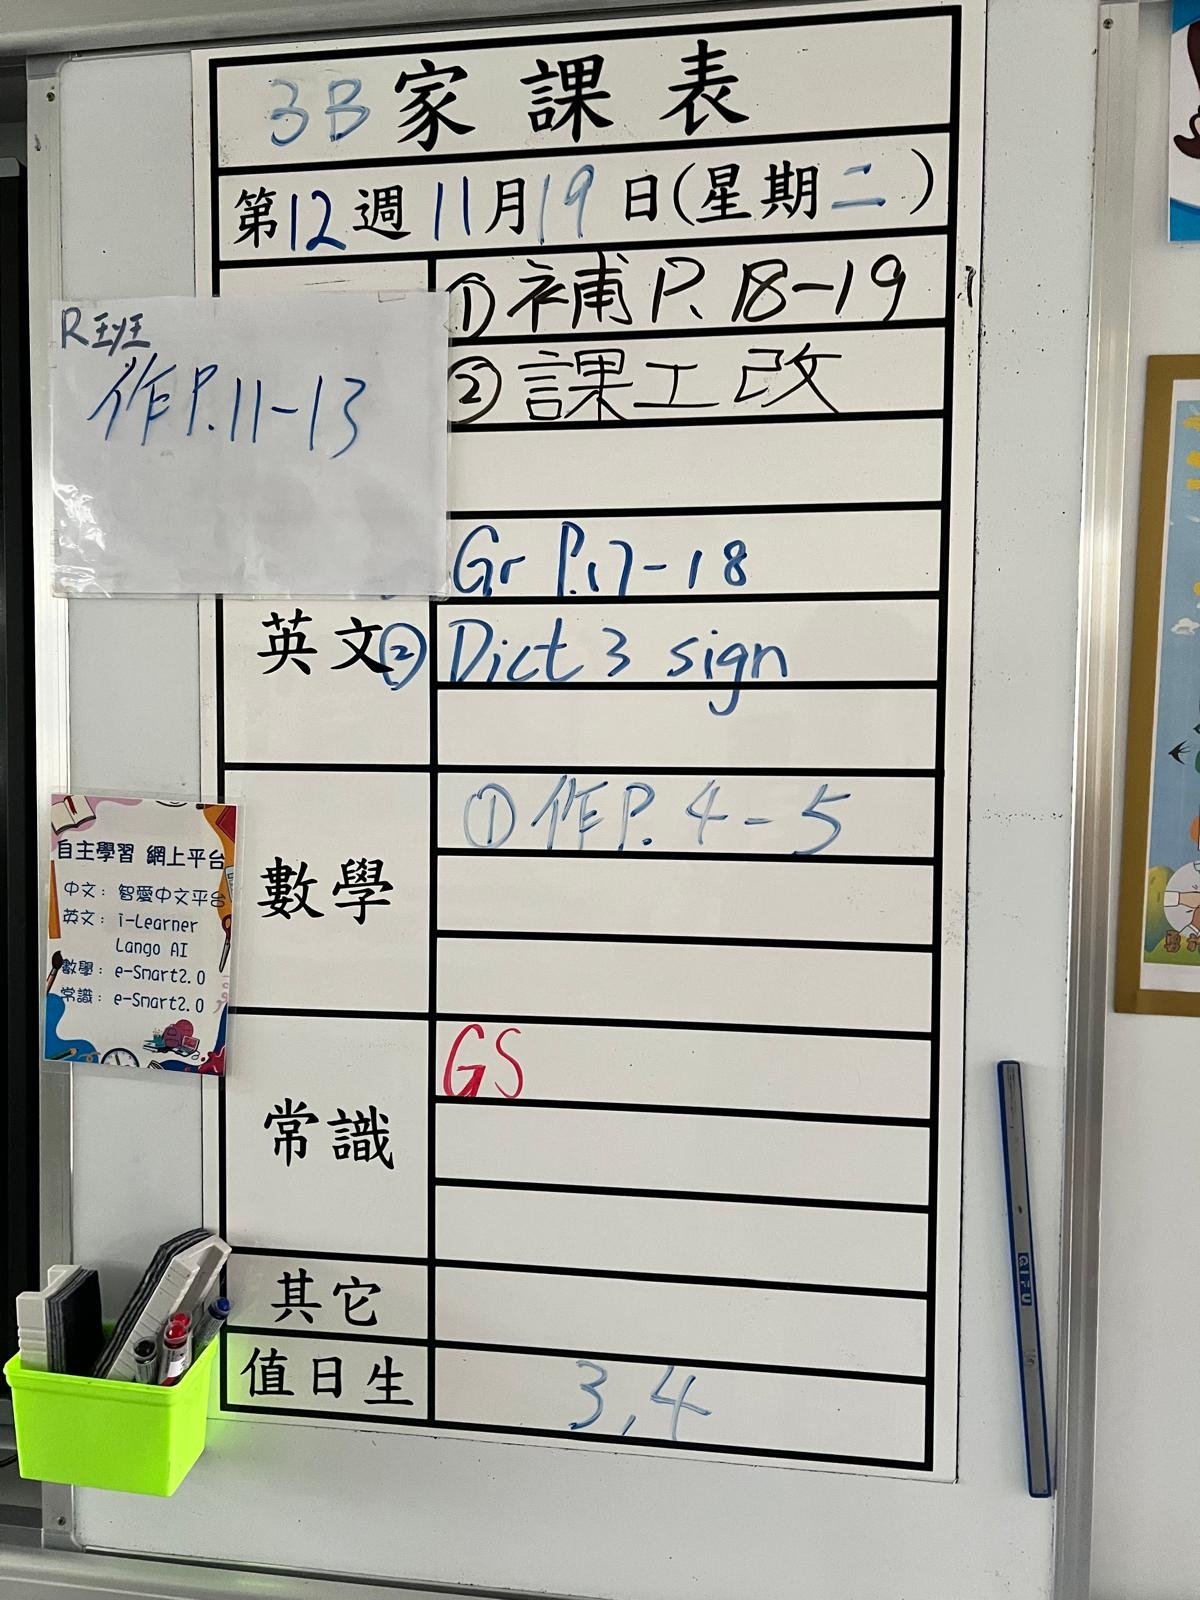 3B家課表
第12週11月19日(星期二)
①補P.18-19
②課工改
R班
作P.11-13
Gr P.17-18
英文
② Dict 3 sign
數學
①作P.4-5
自主學習 網上平台
中文：智愛中文平台
英文：i-Learner
Lango AI
數學：e-Smart2.0
常識：e-Smart2.0
常識
GS
其它
值日生
3,4